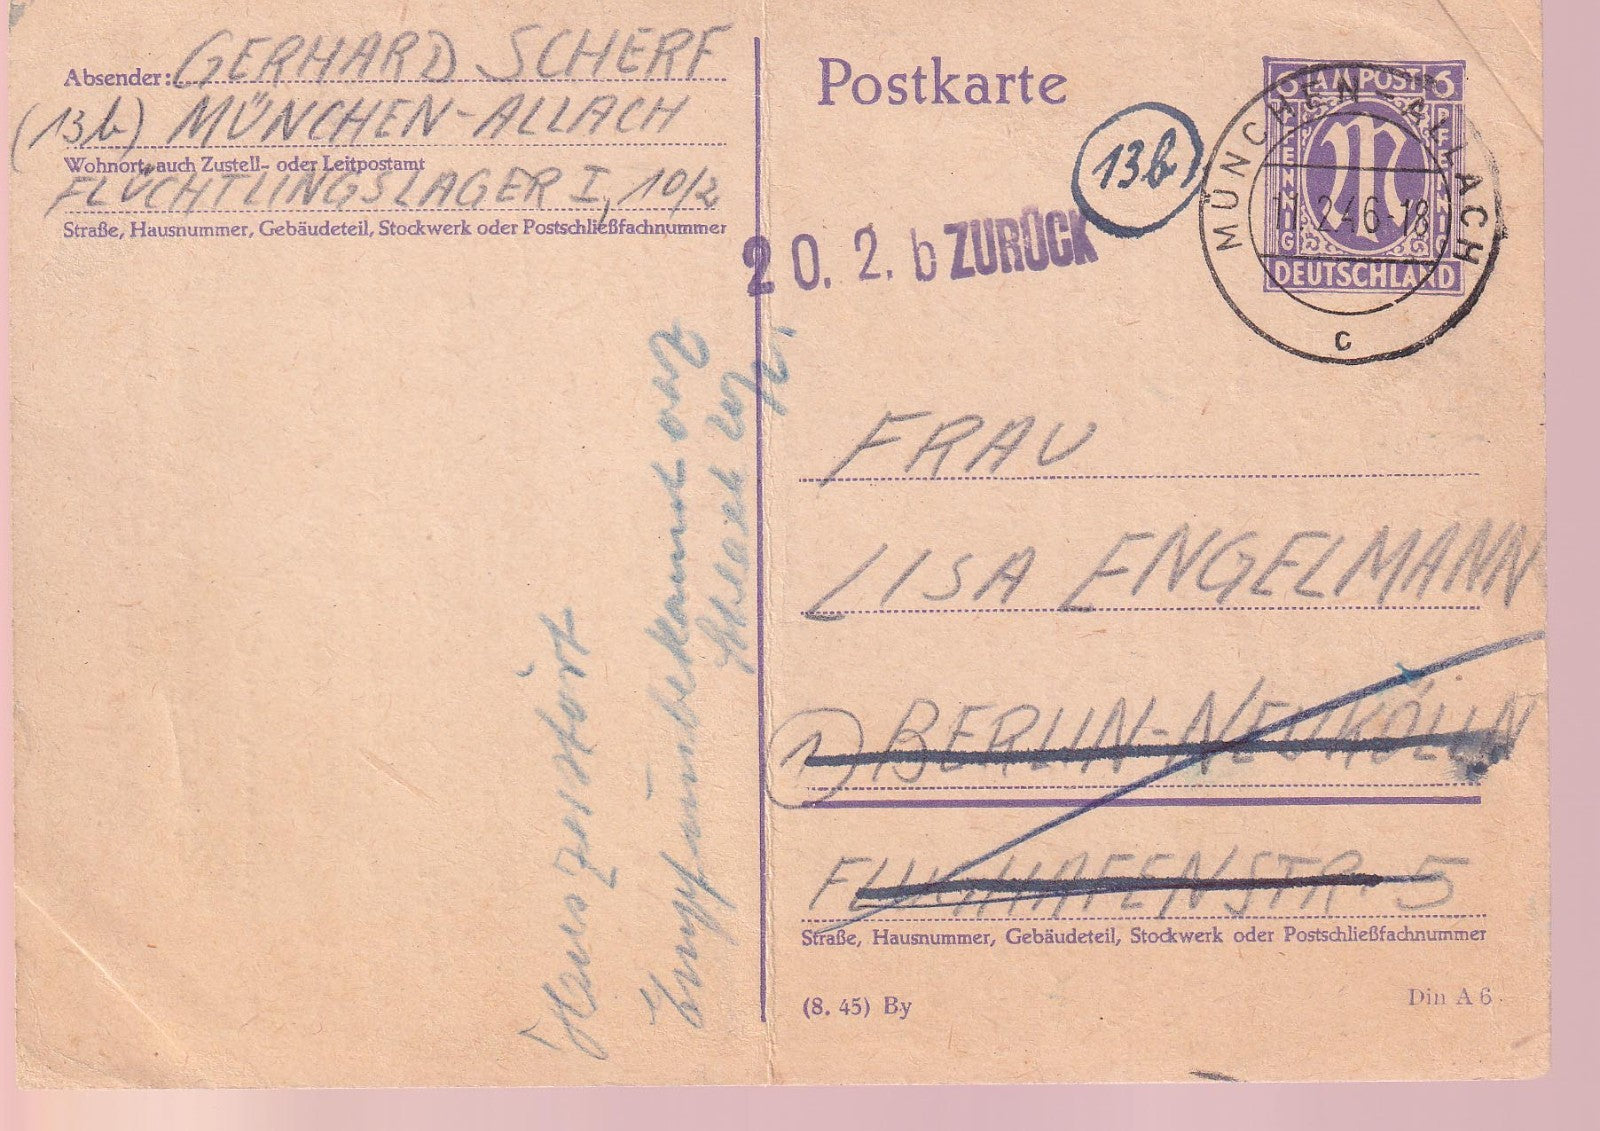 Absender: GERHARD SCHERF
(13b) MÜNCHEN-ALLACH
Wohnort, auch Zustell- oder Leitpostamt
FLÜCHTLINGSLAGER I, 10/2
Straße, Hausnummer, Gebäudeteil, Stockwerk oder Postschließfachnummer
Postkarte
13b
6 AM POST 6
PFENNIG
PFENNIG
DEUTSCHLAND
MÜNCHEN-ALLACH
11.2.46-18
c
20. 2. b ZURÜCK
Haus zerstört
Empfann unbekannt
FRAU
LISA ENGELMANN
(1) BERLIN-NEUKÖLLN
FLUGHAFENSTR. 5
Straße, Hausnummer, Gebäudeteil, Stockwerk oder Postschließfachnummer
(8. 45) By
Din A 6